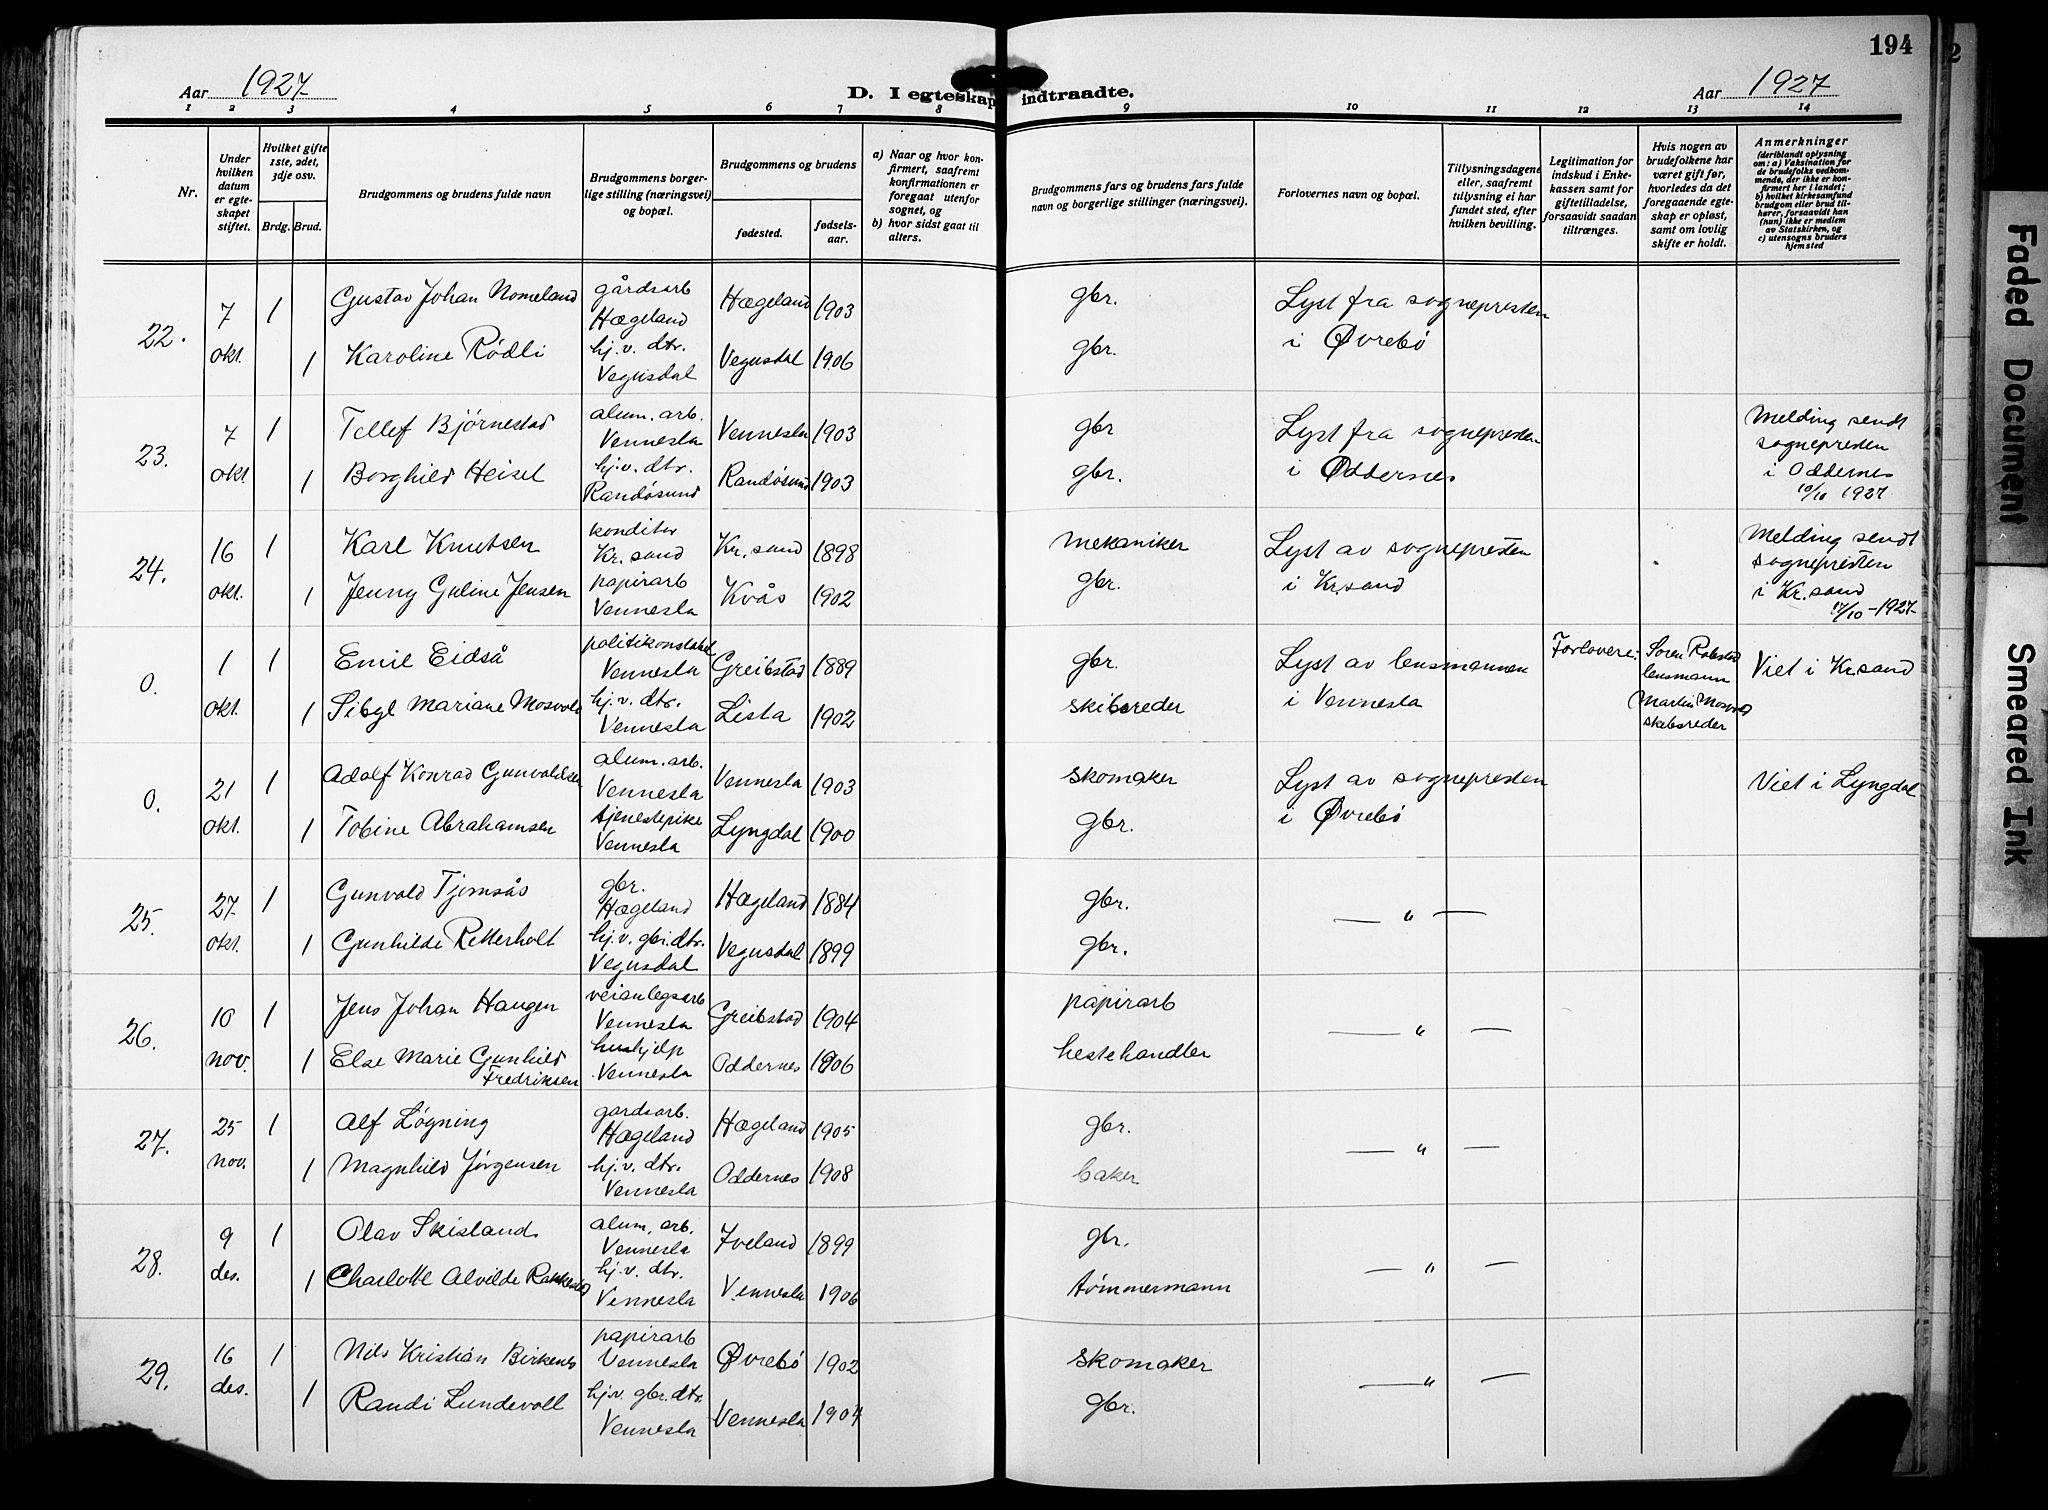 194
2
Aar 1927
D. I egteskap indtraadte.
Aar 1927
1 2 3 4 5 6 7 8 9 10 11 12 13 14
Nr.
Under hvilken datum er egteskapet stiftet.
Hvilket gifte 1ste, 2det, 3dje osv.
Brdg. Brud.
Brudgommens og brudens fulde navn
Brudgommens borgerlige stilling (næringsvei) og bopæl.
Brudgommens og brudens
fødested.
fødselsaar.
a) Naar og hvor konfirmert, saafremt konfirmationen er foregaat utenfor sognet, og
b) hvor sidst gaat til alters.
Brudgommens fars og brudens fars fulde navn og borgerlige stillinger (næringsvei).
Forlovernes navn og bopæl.
Tillysningsdagene eller, saafremt tillysning ei har fundet sted, efter hvilken bevilling.
Legitimation for indskud i Enkekassen samt for giftetilladelse, forsaavidt saadan tiltrænges.
Hvis nogen av brudefolkene har været gift før, hvorledes da det foregaaende egteskap er opløst, samt om lovlig skifte er holdt.
Anmerkninger
(deriblandt oplysning om: a) Vaksination for de brudefolks vedkommende, der ikke er konfirmert her i landet;
b) hvilket kirkesamfund brudgom eller brud tilhører, forsaavidt han (hun) ikke er medlem av Statskirken, og
c) utensogns bruders hjemsted
22. 7 okt. 1 Gustav Johan Nomeland gårdsarb Hægeland Hægeland 1903 gbr. Lyst fra sognepresten i Øvrebö
1 Karoline Rödli hj.v. dtr. Vegusdal Vegusdal 1906 gbr.
23. 7 okt 1 Tellef Bjørnestad alum. arb. Vennesla Vennesla 1903 gbr Lyst fra sognepresten i Oddernes. Melding sendt sognepresten i Oddernes 10/10 1927.
1 Borghild Heisel hj.v. dtr. Randösund Randösund 1903 gbr.
24. 16 okt. 1 Karl Knutsen konditor Kr.sand Kr.sand 1898 mekaniker Lyst av sognepresten i Kr.sand Melding sendt sognepresten i Kr.sand 17/10-1927-
1 Jenny Guline Jensen papirarb Vennesla Kvås 1902 gbr.
0. 1 okt. 1 Emil Eidså politikonstabel Vennesla Greibstad 1889 gbr. Lyst av lensmannen i Vennesla Forlovere: Søren Robstad lensmann Martin Mosvold skibsreder Viet i Kr.sand
1 Sibyl Mariane Mosvold hj.v. dtr. Vennesla Lista 1902 skibsreder
0. 21 okt. 1 Adolf Konrad Gunvaldsen alum. arb. Vennesla Vennesla 1903 skomaker Lyst av sognepresten i Øvrebö Viet i Lyngdal
1 Tobine Abrahamsen tjenestepike Vennesla Lyngdal 1900 gbr.
25. 27 okt. 1 Gunvald Tjomsås gbr. Hægeland Hægeland 1884 gbr. — " —
1 Gunhilde Retterholt hj.v. gbr.dtr. Vegusdal Vegusdal 1899 gbr.
26. 10 nov. 1 Jens Johan Haugen veianlegsarb Vennesla Greibstad 1904 papirarb — " —
1 Else Marie Gunhild Fredriksen hushjelp Vennesla Oddernes 1906 hestehandler
27. 25 nov. 1 Alf Løgning gardsarb. Hægeland Hægeland 1905 gbr. — " —
1 Magnhild Jørgensen hj.v. dtr. Vennesla Oddernes 1908 baker
28. 9 des. 1 Olav Skisland alum. arb. Vennesla Iveland 1899 gbr. — " —
1 Charlotte Alvilde hj.v. dtr. Vennesla Vennesla 1906 tømmermann
29. 16 des. 1 Nils Kristian Birkenes papirarb Vennesla Øvrebö 1902 skomaker — " —
1 Randi Lundevoll hj.v. gbr.dtr. Vennesla Vennesla 1904 gbr.
Faded Document
Smeared Ink